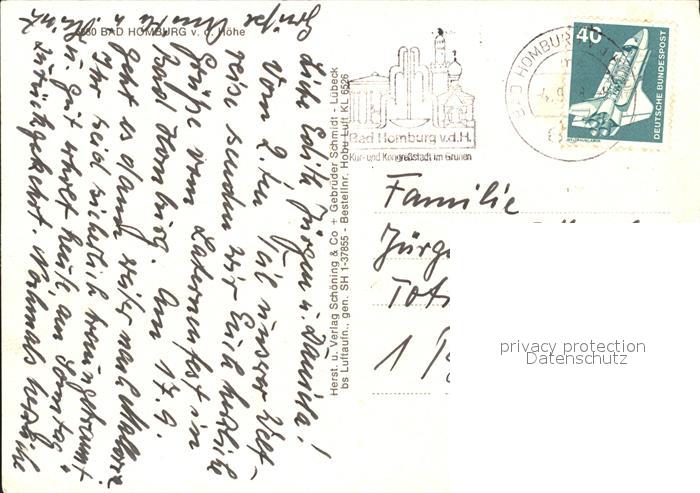 6380 BAD HOMBURG v. d. Höhe
Liebe Edith, Jürgen u. Daniela!
Vom 2. ten Teil unserer Welt-
reise senden wir Euch herzliche
Grüße vom Laternenfest in
Bad Homburg. Am 17.9.
geht es dann weiter nach Mallorca
Ihr seid sicherlich braungebrannt
u. gut erholt heute, am Sonntag
zurückgekehrt. Nochmals herzliche
Grüße
Herst. u. Verlag Schöning & Co + Gebrüder Schmidt · Lübeck
bs Luftaufn., gen. SH 1-37855 - Bestellnr. Hobu Luft KL 6526
Bad Homburg v.d.H.
Kur- und Kongreßstadt im Grünen
BAD HOMBURG
40
DEUTSCHE BUNDESPOST
Familie
Jürg
Tot
1
privacy protection
Datenschutz